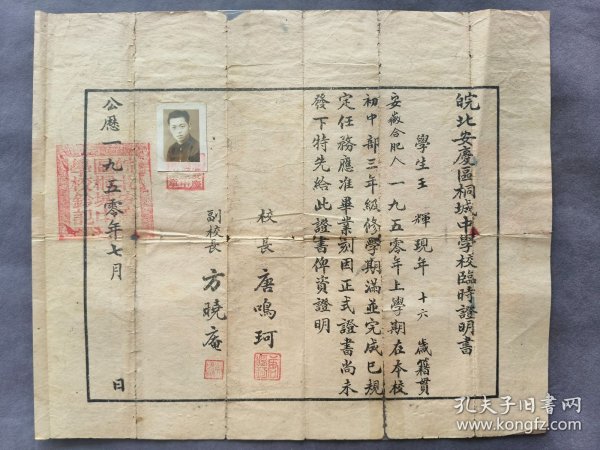 皖北安慶區桐城中學校臨時證明書
學生王 輝現年 十六 歲籍貫
安徽合肥人一九五零年上學期在本校
初中部三年級修學期滿並完成已規
定任務應准畢業刻因正式證書尚未
發下特先給此證書俾資證明
校長 唐鳴珂
副校長 方曉庵
公曆一九五零年七月 日
孔夫子旧书网
www.kongfz.com